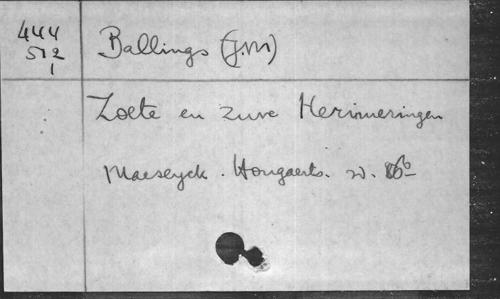 444
512
1
Ballings (J.M)
Zoete en Zure Herinneringen
Maeseyck. Hougaerts.